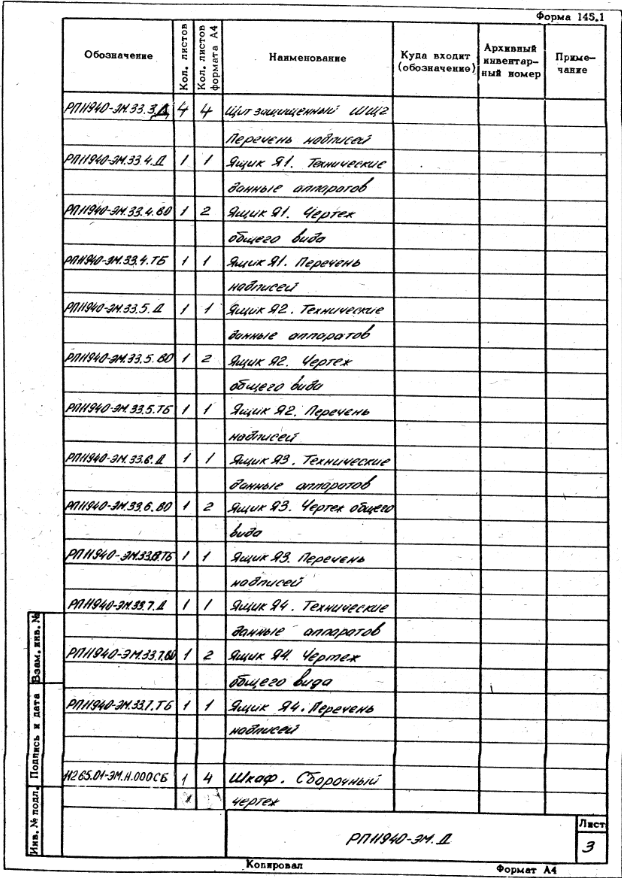 Форма 145.1
Обозначение
Кол. листов
Кол. листов формата А4
Наименование
Куда входит (обозначение)
Архивный инвентарный номер
Примечание
РП11940-ЭМ.33.3.Д 4 4 Щит защищенный ШЩ2
Перечень надписей
РП11940-ЭМ.33.4.Д 1 1 Ящик Я1. Технические
данные аппаратов
РП11940-ЭМ.33.4.ВО 1 2 Ящик Я1. Чертеж
общего вида
РП11940-ЭМ.33.4.ТБ 1 1 Ящик Я1. Перечень
надписей
РП11940-ЭМ.33.5.Д 1 1 Ящик Я2. Технические
данные аппаратов
РП11940-ЭМ.33.5.ВО 1 2 Ящик Я2. Чертеж
общего вида
РП11940-ЭМ.33.5.ТБ 1 1 Ящик Я2. Перечень
надписей
РП11940-ЭМ.33.6.Д 1 1 Ящик Я3. Технические
данные аппаратов
РП11940-ЭМ.33.6.ВО 1 2 Ящик Я3. Чертеж общего
вида
РП11940-ЭМ.33.6.ТБ 1 1 Ящик Я3. Перечень
надписей
РП11940-ЭМ.33.7.Д 1 1 Ящик Я4. Технические
данные аппаратов
РП11940-ЭМ.33.7.ВО 1 2 Ящик Я4. Чертеж
общего вида
РП11940-ЭМ.33.7.ТБ 1 1 Ящик Я4. Перечень
надписей
Н265.01-ЭМ.Н.000СБ 1 4 Шкаф. Сборочный
чертеж
Взам. инв. №
Подпись и дата
Инв. № подл.
РП11940-ЭМ.Д
Лист
3
Копировал
Формат А4